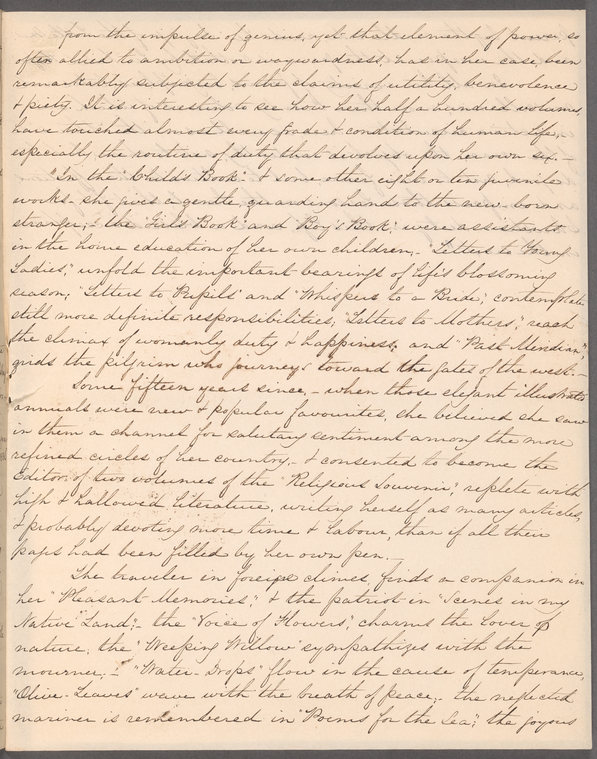 from the impulse of genius, yet that element of power, so
often allied to ambition or waywardness, has in her case been
remarkably subjected to the claims of utility, benevolence
& piety. It is interesting to see how her half a hundred volumes,
have touched almost every grade & condition of human life,
especially the routine of duty that devolves upon her own sex.—
"In the "Child's Book" & some other eight or ten juvenile
works - she gives a gentle, guarding hand to the new-born
stranger;- the "Girl's Book" and Boy's Book," were assistants
in the home education of her own children,- "Letters to Young
Ladies," unfold the important bearings of life's blossoming
season; "Letters to Pupils" and "Whispers to a Bride," contemplate
still more definite responsibilities; "Letters to Mothers," reach
the climax of womanly duty & happiness; and "Past Meridian,"
girds the pilgrim who journeys toward the gates of the west.—
Some fifteen years since,- when those elegant illustrated
annuals were new & popular favourites, she believed she saw
in them a channel for salutary sentiment among the more
refined circles of her country,- & consented to become the
Editor of two volumes of the "Religious Souvenir" replete with
high & hallowed literature, writing herself as many articles,
& probably devoting more time & labour, than if all their
pages had been filled by her own pen.—
The traveler in foreign climes, finds a companion in
her "Pleasant Memories," & the patriot in "Scenes in my
Native Land";- the "Voice of Flowers," charms the lover of
nature, the "Weeping Willow" sympathizes with the
mourner;- "Water-Drops" flow in the cause of temperance,
"Olive-Leaves" wave with the breath of peace;- the neglected
mariner is remembered in "Poems for the Sea"; the joyous